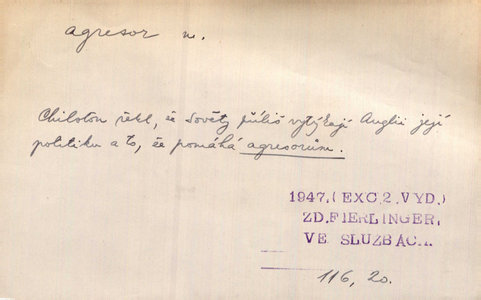 agresor m.
Chilston řekl, že Sověty příliš vytýkají Anglii její
politiku a to, že pomáhá agresorům.
1947.(EXC.2.VYD.)
ZD.FIERLINGER,
VE SLUZBÁCH.
116, 20.